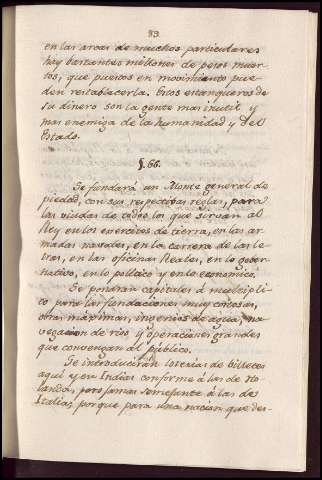 83.
en las arcas de muchos particulares
hay bastantes millones de pesos muer-
tos, que puestos en movimiento pue-
den restablecerla. Estos estanqueros de
su dinero son la gente mas inutil y
mas enemiga de la humanidad y del
Estado.
§. 66.
Se fundará un Monte general de
piedad, con sus respectivas reglas, para
las viudas de todos los que sirvan al
Rey en los exercitos de tierra, en las ar-
madas navales, en la carrera de las le-
tras, en las oficinas Reales, en lo gober-
nativo, en lo politico y en lo economico.
Se pondrán capitales á multipli-
co para las fundaciones muy costosas,
obras máximas, ingenios de agua, na-
vegacion de rios y operaciones grandes
que convengan al público.
Se introducirán loterias de billetes
aqui y en Indias conforme á las de Ho-
landa, pero jamas semejante á las de
Italia, porque para una nacion que des-